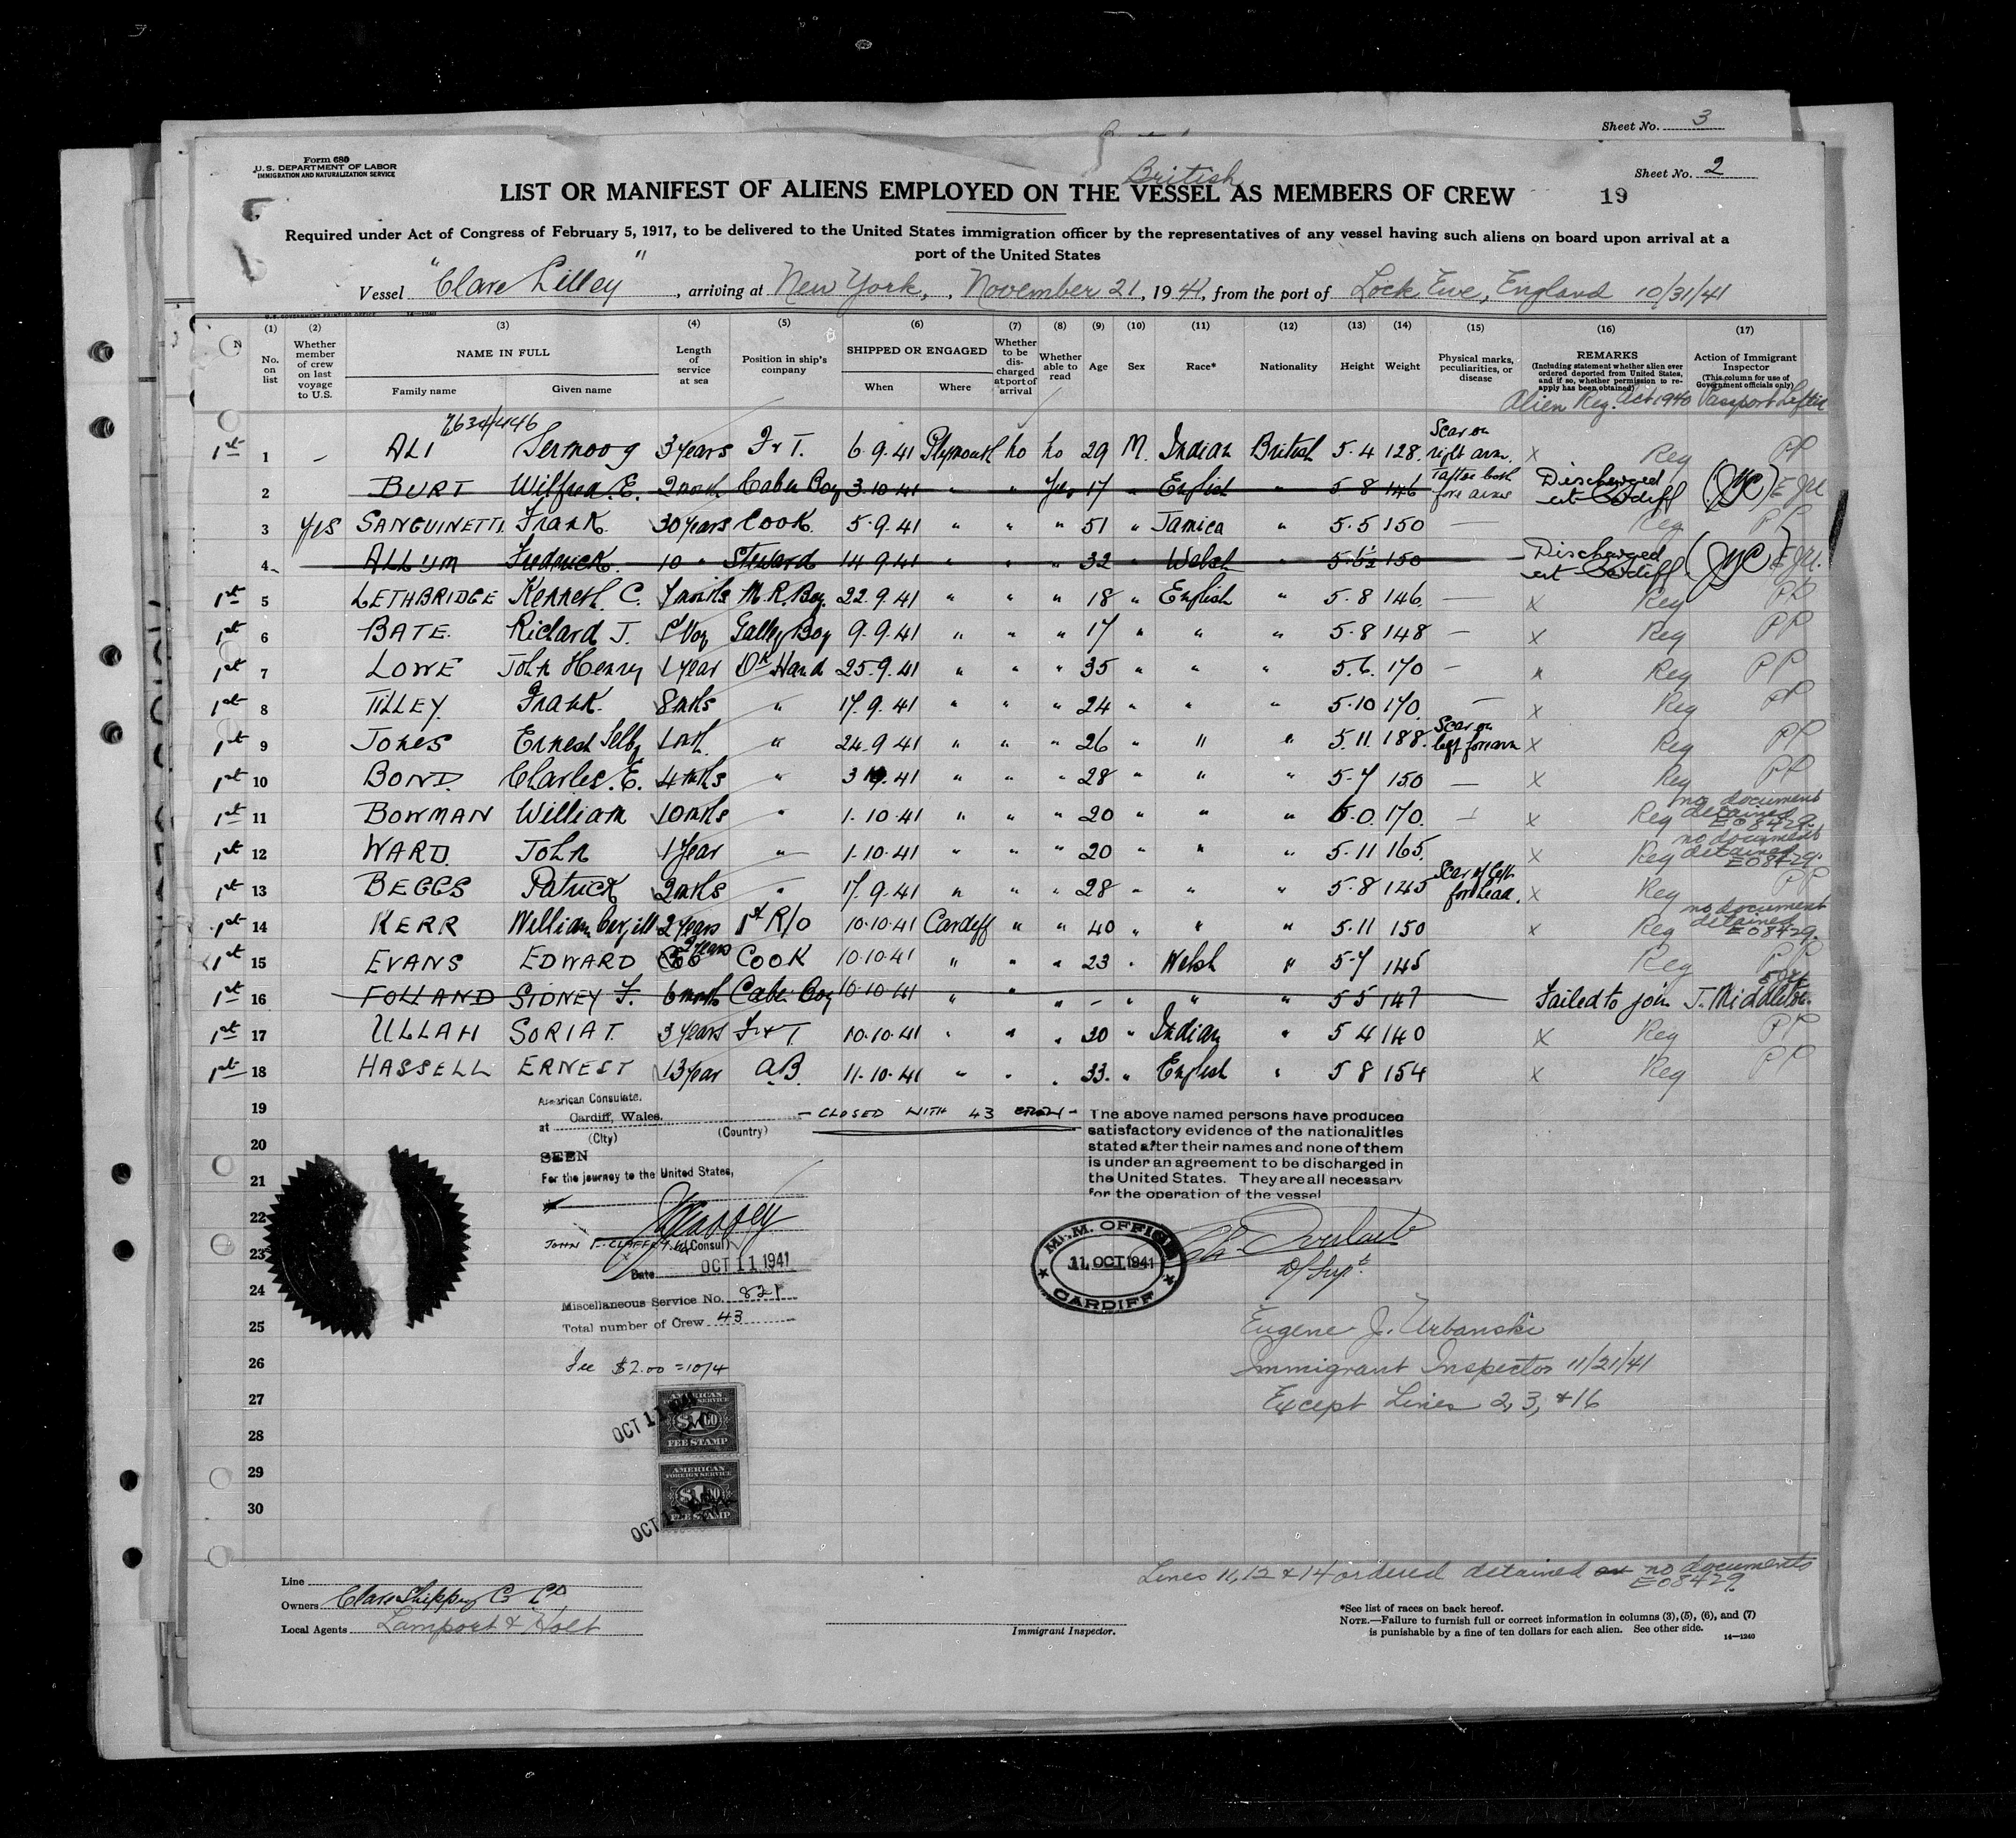 Sheet No. 3
Form 680
U. S. DEPARTMENT OF LABOR
IMMIGRATION AND NATURALIZATION SERVICE
British
Sheet No. 2
LIST OR MANIFEST OF ALIENS EMPLOYED ON THE VESSEL AS MEMBERS OF CREW
19
Required under Act of Congress of February 5, 1917, to be delivered to the United States immigration officer by the representatives of any vessel having such aliens on board upon arrival at a
port of the United States
Vessel "Clare Lilley", arriving at New York, November 21, 1941, from the port of Lock Ewe, England 10/31/41
U. S. GOVERNMENT PRINTING OFFICE 14-1240
(1) (2) (3) (4) (5) (6) (7) (8) (9) (10) (11) (12) (13) (14) (15) (16) (17)
No. on list
Whether member of crew on last voyage to U.S.
NAME IN FULL
Family name Given name
Length of service at sea
Position in ship's company
SHIPPED OR ENGAGED
When Where
Whether to be discharged at port of arrival
Whether able to read
Age Sex Race* Nationality Height Weight
Physical marks, peculiarities, or disease
REMARKS
(Including statement whether alien ever ordered deported from United States, and if so, whether permission to reapply has been obtained)
Action of Immigrant Inspector
(This column for use of Government officials only)
Alien Reg. Act 1940 Passport Lifted
1st 1 – ALI Sermoog 3 years F & T. 6.9.41 Plymouth no no 29 M. Indian British 5.4 128. Scar on right arm. x Reg PP
2 BURT Wilfred. E. 2 month Cabin Boy 3.10.41 " " Yes 17 " English " 5 8 146 Tattoo both fore arms Discharged at Cardiff
3 Yes SANGUINETTI. Frank. 30 years COOK. 5.9.41 " " " 51 " Jamica " 5.5 150 — Reg PP
4 ALLUM Frederick. 10 " Steward 14.9.41 " 32 " Welsh " 150 Discharged at Cardiff
1st 5 LETHBRIDGE Kenneth. C. 7 months M.R. Boy. 22.9.41 " " " 18 " English " 5.8 146. — x Reg PP
1st 6 BATE. Richard J. 1 Voy Galley Boy 9.9.41 " " " 17 " " " 5.8 148 — x Reg PP
1st 7 LOWE John Henry 1 year Dk Hand 25.9.41 " " " 35 " " " 5.6. 170 — x Reg PP
1st 8 TILLEY. Frank. 8 mths " 17.9.41 " " " 24 " " " 5.10 170. — x Reg PP
1st 9 JONES Ernest Selby 1 mth. " 24.9.41 " " " 26 " " " 5.11. 188. Scar on left forearm x Reg PP
1st 10 BOND. Charles. E. 4 mths " " " " 28 " " " 5.7 150 — x Reg PP
1st 11 BOWMAN William 10 mths " 1.10.41 " " " 20 " " " 6.0. 170. x Reg no document detained E08429.
1st 12 WARD. John 1 Year " 1.10.41 " " " 20 " " " 5.11 165. x Reg no document detained E08429.
1st 13 BEGGS Patrick 2 mths " 17.9.41 " " " 28 " " " 5.8 145 Scar of left forehead. x Reg PP
1st 14 KERR William 2 Years 1st R/O 10.10.41 Cardiff " " 40 " " " 5.11 150 x Reg no document detained E08429.
1st 15 EVANS EDWARD 2 years COOK 10.10.41 " " " 23 " Welsh " 5.7 145 Reg PP
1st 16 FOLLAND SIDNEY F. 6 month Cabin Boy 10.10.41 " " " – " " " 5 5 147 Failed to join J. Middleton.
1st 17 ULLAH SORIAT. 3 years F & T 10.10.41 " " " 30 " Indian " 5 4 140 x Reg PP
1st 18 HASSELL ERNEST 13 year A.B. 11.10.41 " " " 33. " English " 5 8 154 x Reg PP
19
20
21
22
23
24
25
26
27
28
29
30
American Consulate.
at Cardiff, Wales.
(City) (Country)
– CLOSED WITH 43 CREW –
SEEN
For the journey to the United States,
(Consul)
Date OCT 11 1941
Miscellaneous Service No. 821
Total number of Crew 43
Fee $2.00 = 10/4
The above named persons have produced
satisfactory evidence of the nationalities
stated after their names and none of them
is under an agreement to be discharged in
the United States. They are all necessary
for the operation of the vessel
M.M. OFFICE
11 OCT 1941
CARDIFF
D/Supt.
Eugene J. Urbanski
Immigrant Inspector 11/21/41
Except Lines 2, 3, & 16
AMERICAN
FOREIGN SERVICE
$1.00
FEE STAMP
OCT 11
AMERICAN
FOREIGN SERVICE
$1.00
FEE STAMP
OCT 11
Lines 11, 12 & 14 ordered detained no documents
E08429
Line
Owners Clare Shipping Co Ld
Local Agents Lamport & Holt
Immigrant Inspector.
*See list of races on back hereof.
NOTE.—Failure to furnish full or correct information in columns (3), (5), (6), and (7)
is punishable by a fine of ten dollars for each alien. See other side.
14—1240